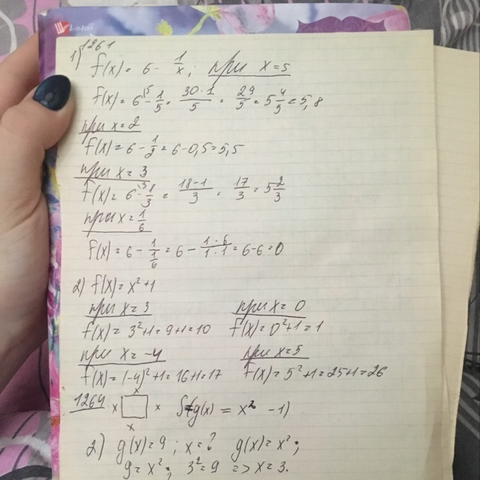 1261
1) f(x) = 6 - 1/x; при x=5
f(x) = 6 - 1/5 = 30·1/5 = 29/5 = 5 4/5 = 5,8
при x=2
f(x) = 6 - 1/2 = 6 - 0,5 = 5,5
при x = 3
f(x) = 6 - 1/3 = 18-1/3 = 17/3 = 5 2/3
при x = 1/6
f(x) = 6 - 1/1/6 = 6 - 1·6/1·1 = 6-6=0
2) f(x) = x²+1
при x=3 при x=0
f(x) = 3²+1=9+1=10 f(x)=0²+1=1
при x=-4 при x=5
f(x)=(-4)²+1=16+1=17 f(x)=5²+1=25+1=26
x
1264 x x S=g(x) = x² - 1)
x
2) g(x)=9; x=? g(x)=x²;
9=x²; 3²=9 => x=3.